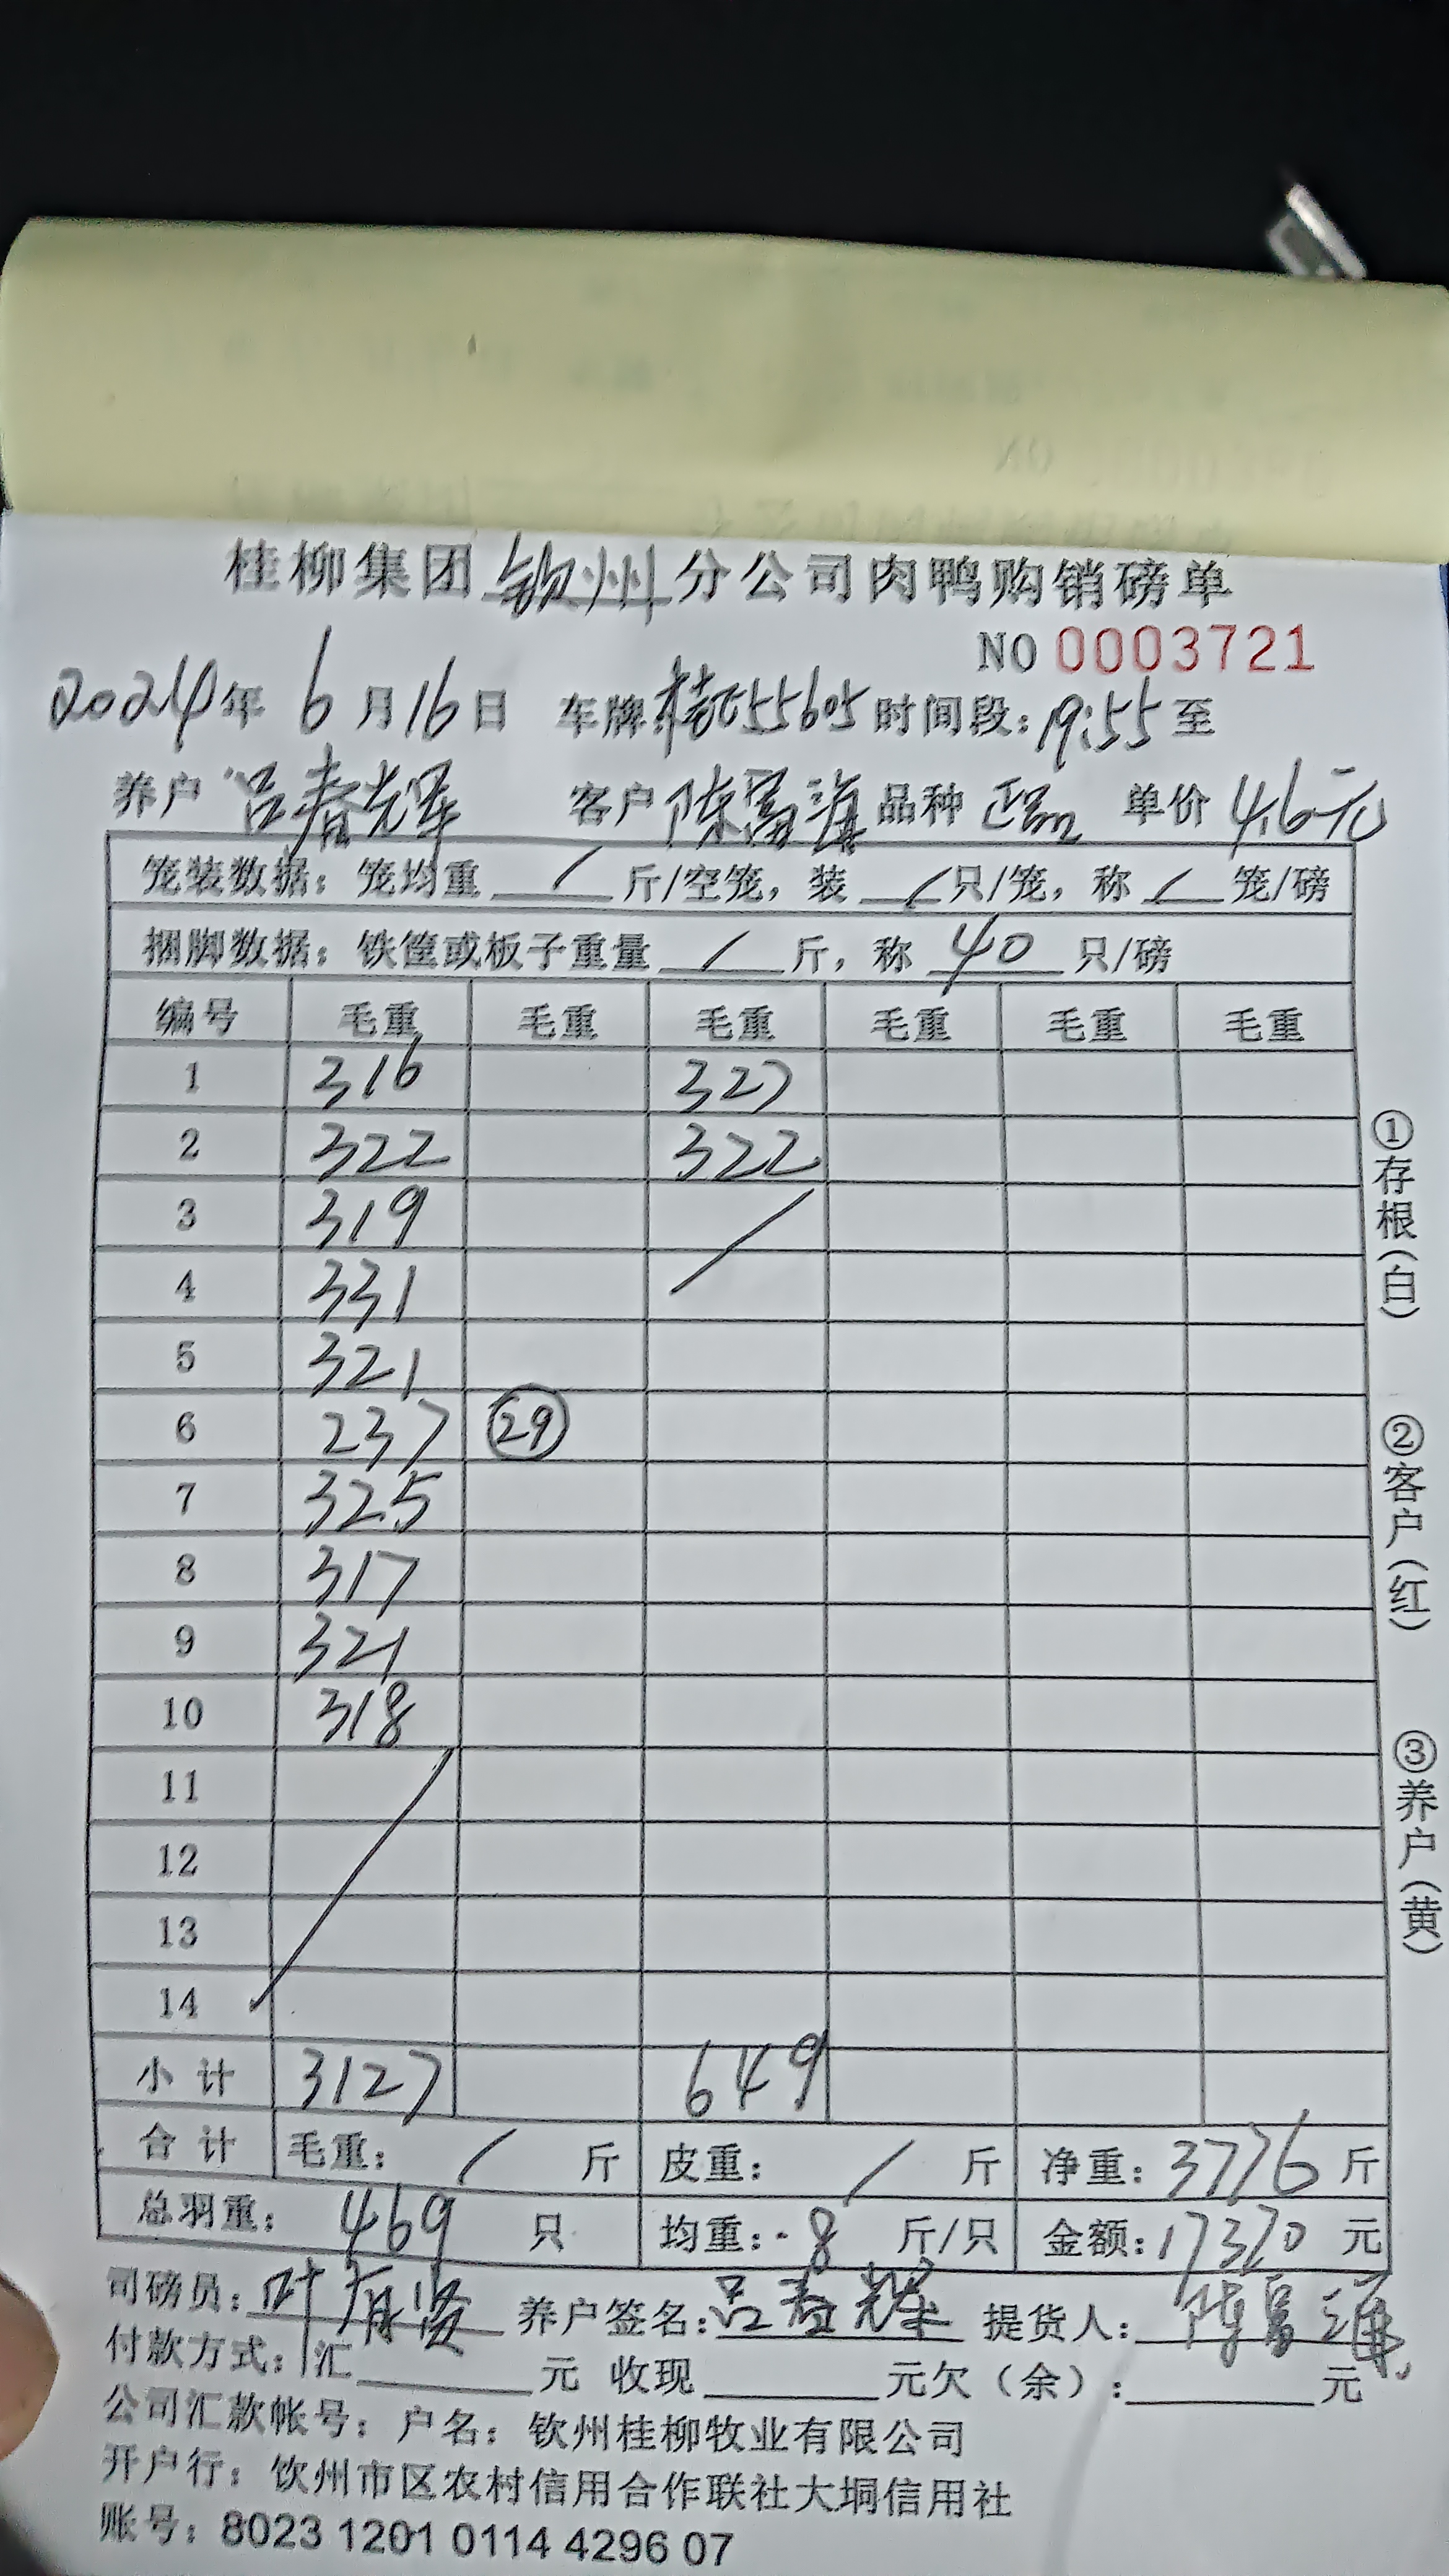 桂柳集团钦州分公司肉鸭购销磅单
NO 0003721
2024年 6 月 16 日 车牌:桂 55605 时间段: 19:55 至
养户 吕春辉 客户 陈富 品种 正品 单价 4.6元
笼装数据: 笼均重 / 斤/空笼, 装 / 只/笼, 称 / 笼/磅
捆脚数据: 铁筐或板子重量 / 斤, 称 40 只/磅
编号 毛重 毛重 毛重 毛重 毛重 毛重
1 316 327
2 322 322
3 319
4 331
5 321
6 237 29
7 325
8 317
9 321
10 318
11
12
13
14
小计 3127 649
合计 毛重: / 斤 皮重: / 斤 净重: 3776 斤
总羽重: 469 只 均重: 8 斤/只 金额: 17370 元
司磅员: 叶 贤 养户签名: 吕春辉 提货人: 陈富
付款方式: 汇 元 收现 元欠(余): 元
公司汇款帐号: 户名: 钦州桂柳牧业有限公司
开户行: 钦州市区农村信用合作联社大垌信用社
账号: 8023 1201 0114 4296 07
①存根(白)
②客户(红)
③养户(黄)